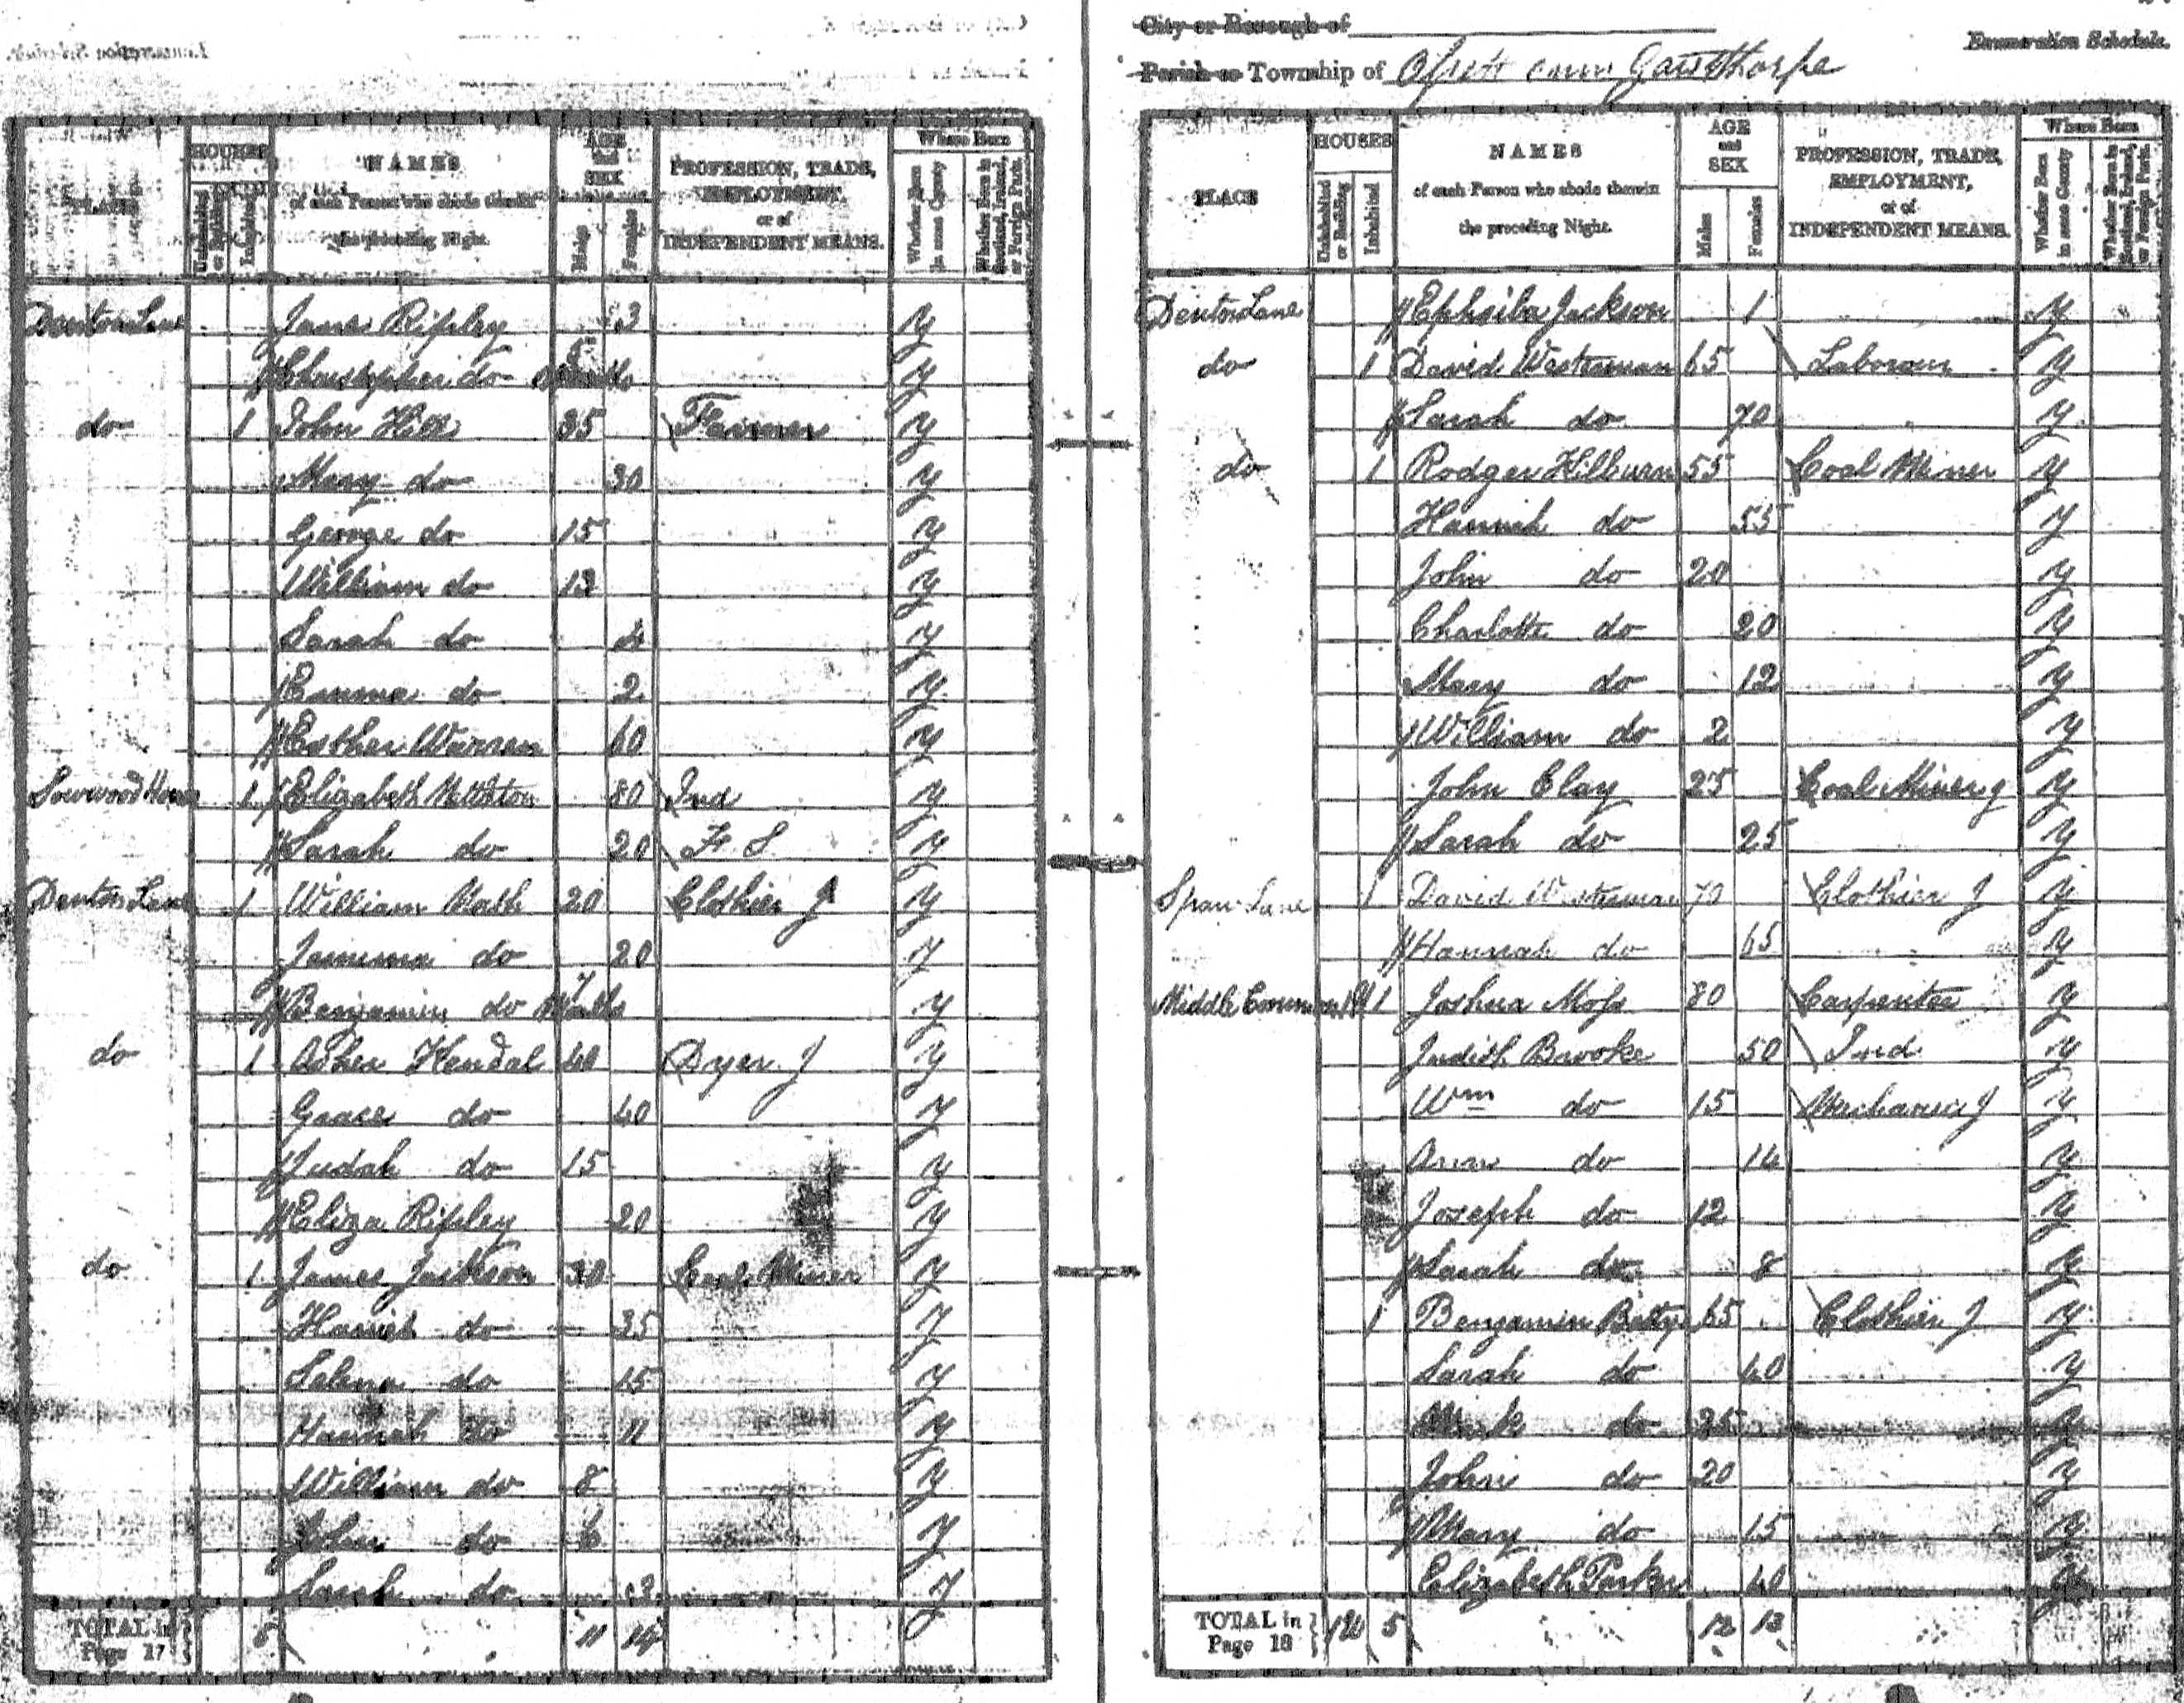 PLACE
HOUSES
Uninhabited or Building
Inhabited
NAMES
of each Person who abode therein
the preceding Night.
AGE
and
SEX
Males
Females
PROFESSION, TRADE,
EMPLOYMENT,
or of
INDEPENDENT MEANS.
Where Born
Whether Born in same County
Whether Born in Scotland, Ireland, or Foreign Parts.
Denton Lane Jane Ripley 3 y
Christopher do y
do 1 John Hill 35 Farmer y
Mary do 30 y
George do 15 y
William do 13 y
Sarah do 4 y
Emma do 2 y
Esther Warren 60 y
Sowwood House 1 Elizabeth 80 Ind y
Sarah do 20 F. S. y
Denton Lane 1 William 20 Clothier J y
Jemima do 20 y
Benjamin do 7 y
do 1 Kendal 40 Dyer J y
Grace do 40 y
Judah do 15 y
Eliza Ripley 20 y
do 1 James Jackson 30 Coal Miner y
do 35 y
Selena do 15 y
Hannah do 11 y
William do 8 y
John do 6 y
Sarah do 3 y
TOTAL in
Page 17 } 5 11 14
City or Borough of
Enumeration Schedule.
Parish or Township of Gawthorpe
PLACE
HOUSES
Uninhabited or Building
Inhabited
NAMES
of each Person who abode therein
the preceding Night.
AGE
and
SEX
Males
Females
PROFESSION, TRADE,
EMPLOYMENT,
or of
INDEPENDENT MEANS.
Where Born
Whether Born in same County
Whether Born in Scotland, Ireland, or Foreign Parts.
Denton Lane Ephsiba Jackson 1 y
do 1 David Westerman 65 Labourer y
Sarah do 70 y
do 1 Rodger Hilburn 55 Coal Miner y
Hannah do 55 y
John do 20 y
Charlotte do 20 y
Mary do 12 y
William do 2 y
John Clay 25 Coal Miner J y
Sarah do 25 y
Span Lane 1 David Westerman 70 Clothier J y
Hannah do 65 y
Middle Common 1 Joshua Moss 80 Carpenter y
Judith Brooke 50 Ind y
Wm do 15 Mechanic J y
Ann do 14 y
Joseph do 12 y
Sarah do 8 y
1 Benjamin Bettys 65 Clothier J y
Sarah do 40 y
Mark do 25 y
John do 20 y
Mary do 15 y
Elizabeth Parker 40 y
TOTAL in
Page 18 } 5 12 13